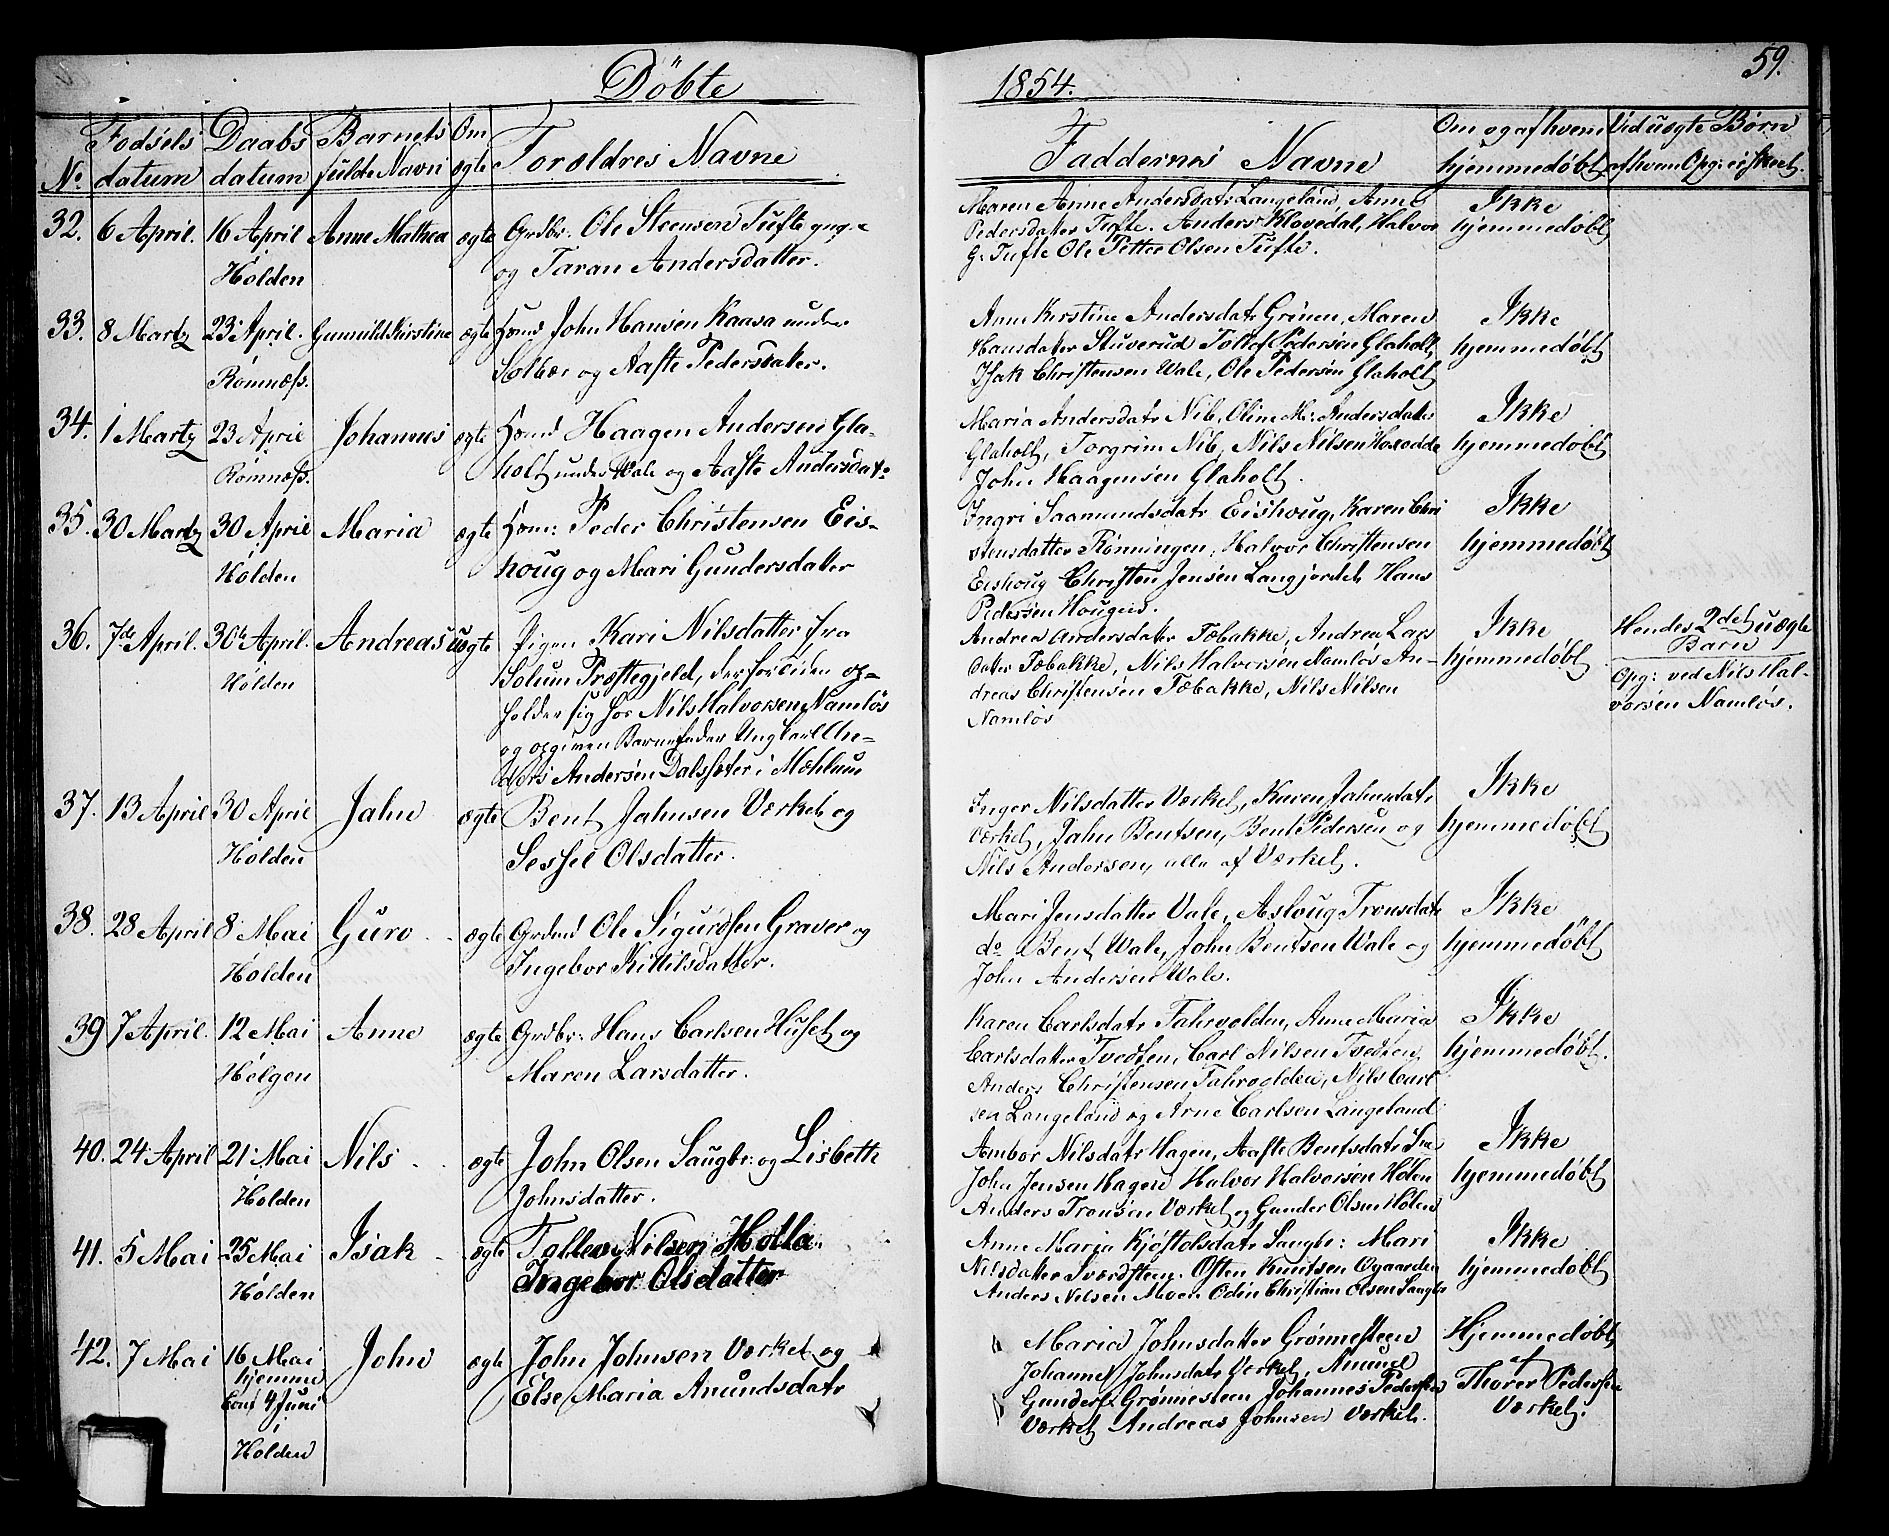 59.
Döbte 1854.
No. Fødsels datum Daabs datum Barnets fulde Navn Om ægte Forældres Navne Faddernes Navne Om og af hvem hjemmedøbt Ved uægte Børn af hvem Opg: er skeet.
32. 6 April. 16 April Anne Mathea ægte Grdbr: Ole Steensen Tufte
Holden og Taran Andersdatter.
Maren Anne Andersdatr Langeland, Anne
Pedersdatter Tufte. Anders Klovedal, Halvor
G. Tufte Ole Petter Olsen Tufte.
Ikke
hjemmedøbt
33. 8 Martz 23 April. Gunnild Kirstine ægte Hsmd John Hansen Kaasa under
Romnæss. Solbær og Aaste Pedersdatter.
Anne Kirstine Andersdatr Grinen, Maren
Hansdatter Stuverud Tollof Pedersen Glaholt,
Isak Christensen Wale, Ole Pedersen Glaholt
Ikke
hjemmedøbt
34. 1 Martz 23 April Johannes ægte Hsmd Haagen Andersen Gla-
Romnæss. holt under Wale og Aaste Andersdatr
Maria Andersdatr Nib, Oline M: Andersdatter
Glaholt, Torgrim Nib, Nils Nilsen
John Haagensen Glaholt.
Ikke
hjemmedøbt
35. 30 Martz 30 April Maria ægte Hsm: Peder Christensen Eis-
Holden houg og Mari Gundersdatter
Ingri Saamundsdatr Eishoug, Karen Chri
stensdatter Rönningen, Halvor Christensen
Eishoug Christen Jensen Langjordet Hans
Pedersen Hougen.
Ikke
hjemmedøbt
36. 7de April. 30te April. Andreas uægte Pigen Kari Nilsdatter fra
Holden Solum Præstegjeld, der for tiden op-
holder sig hos Nils Halvorsen Namløs
og opgiven Barnefader Ungkarl An-
ders Andersen Dalsæter i Mæhlum
Andrea Andersdatter Tæbakke, Andrea Lars
datter Tæbakke, Nils Halvorsen Namløs An-
dreas Christensen Tæbakke, Nils Nilsen
Namløs
Ikke
hjemmedøbt
Hendes 2det uægte
Barn
Opg: ved Nils Hal-
vorsen Namløs.
37. 13 April 30 April Jahn ægte Bent Jahnsen Værket og
Holden Sessel Olsdatter.
Inger Nilsdatter Værket, Karen Jahnsdatr
Værket, Jahn Bentsen, Bent Pedersen og
Nils Andersen, alle af Værket.
Ikke
hjemmedøbt
38. 28 April 8 Mai Guro ægte Grdmd Ole Sigurdsen Graver og
Holden Ingebor Kittilsdatter.
Mari Jensdatter Vale, Asloug Tronsdatr
do Bent Wale, John Bentsen Wale og
John Andersen Wale.
Ikke
hjemmedøbt
39 7 April. 12 Mai Anne ægte Grdbr: Hans Carlsen Huset og
Helgen Maren Larsdatter.
Karen Carlsdatr Fahrvolden, Anne Maria
Carlsdatter Tvedten, Carl Nilsen Tvedten,
Anders Christensen Fahrvolden, Nils Carl
sen Langeland og Arne Carlsen Langeland
Ikke
hjemmedøbt.
40. 24 April 21 Mai Nils ægte John Olsen Saugbr: og Lisbeth
Holden Johnsdatter.
Ambor Nilsdatr Hagen, Aaste Bentsdatr
John Jensen Hagen Halvor Halvorsen Holen
Anders Tronsen Værket og Gunder Olsen Holen
Ikke
hjemmedøbt
41. 5 Mai 25 Mai Isak ægte Tallev Nilsen Holla
Holden Ingebor Olsdatter
Anne Maria Kjøstolsdatr Saugbr: Mari
Nilsdatter Sværdsteen. Osten Knutsen Ogaarden
Anders Nilsen Moen Odin Christian Olsen Saugbr
Ikke
hjemmedøbt
42. 7 Mai 16 Mai John ægte John Johnsen Værket og
hjemme Else Maria Amundsdatr
Conf 4 Juni
i
Holden
Maria Johnsdatter Grønnesteen
Johanne Johnsdatr Værket, Amund
Gunders Grønnesteen Johannes Pedersen
Værket Andreas Johnsen Værket.
Hjemmedøbt
af
Thorer Pedersen
Værket.